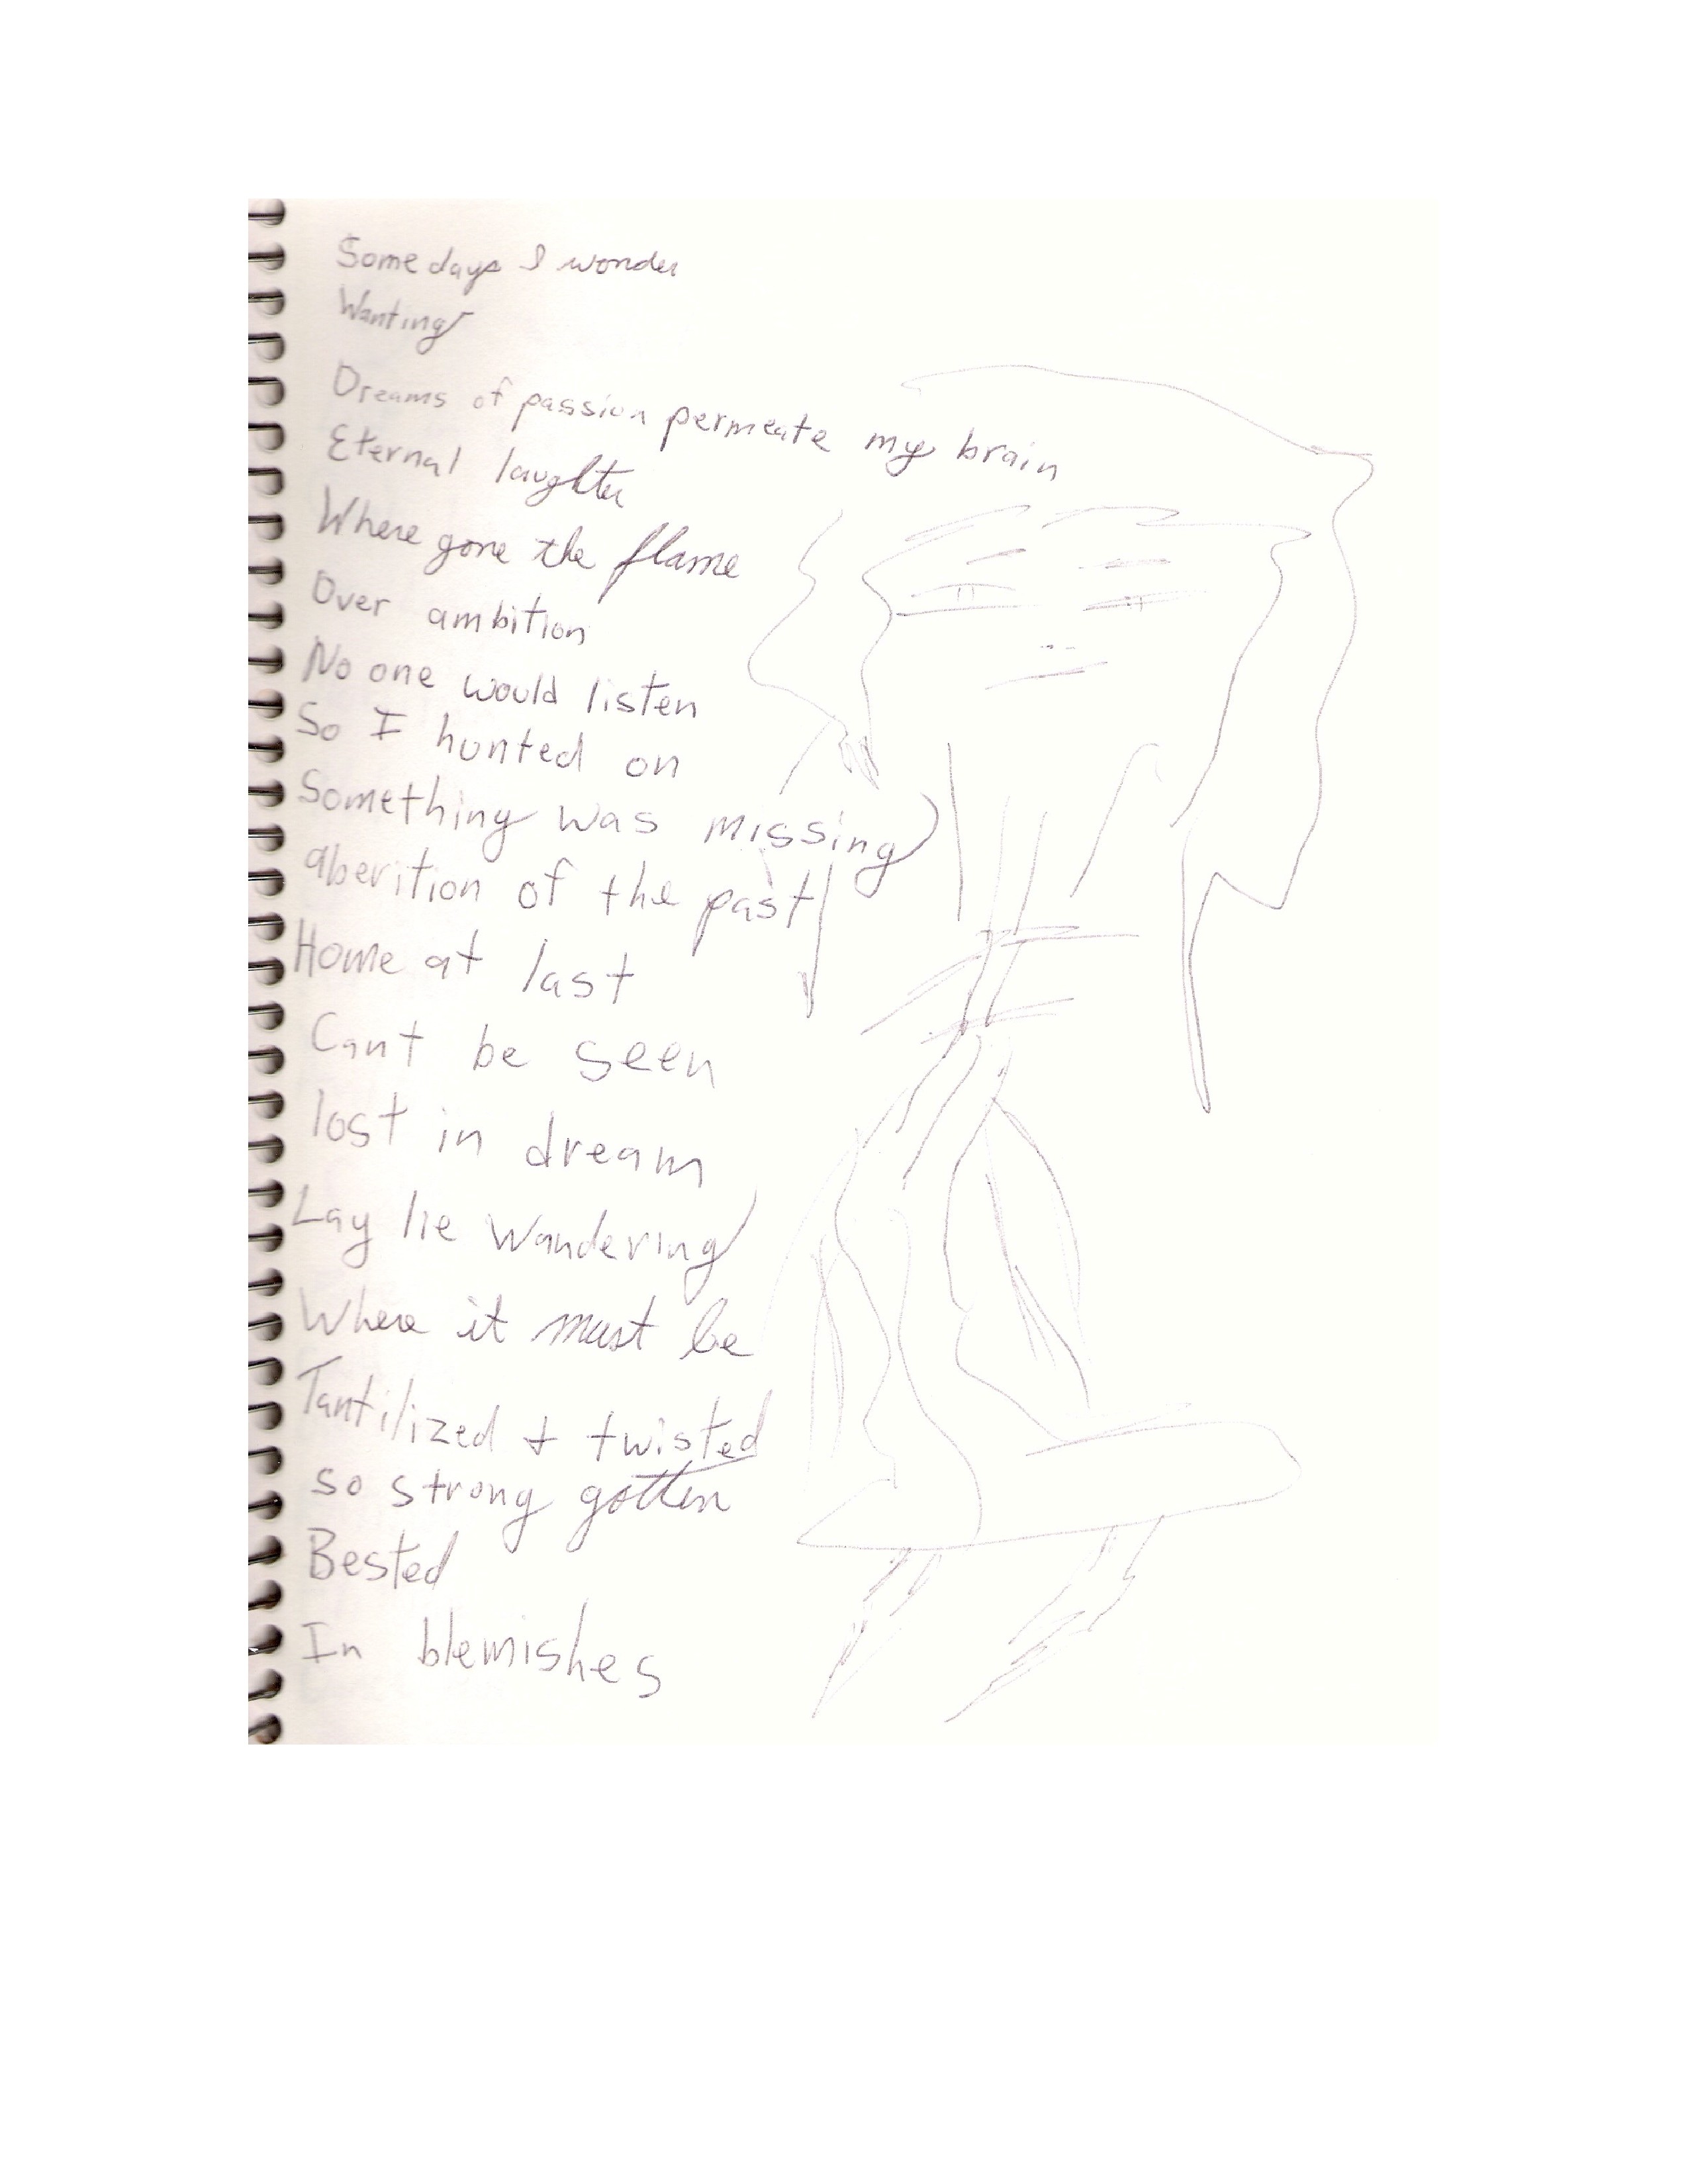 Some days I wonder
Wanting
Dreams of passion permeate my brain
Eternal laughter
Where gone the flame
Over ambition
No one would listen
So I hunted on
Something was missing
aberition of the past
Home at last
Cant be seen
lost in dream
Lay lie wandering
Where it must be
Tantilized + twisted
so strong gotten
Bested
In blemishes